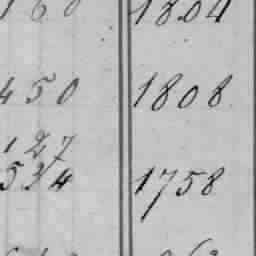 160 1804
450 1808
127
534 1758